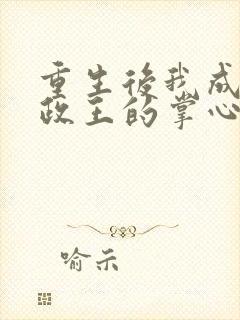 重生後我成
政王的掌心
喻示